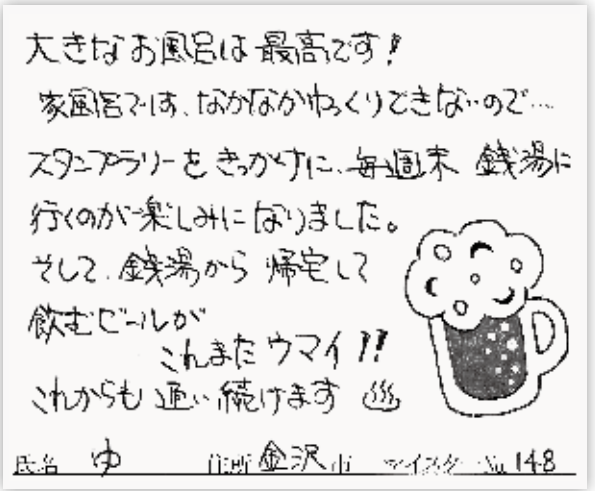 大きなお風呂は最高です!
家風呂では、なかなかゆっくりできないので…
スタンプラリーをきっかけに、毎週末 銭湯に
行くのが楽しみになりました。
そして、銭湯から帰宅して
飲むビールが
これまたウマイ!!
これからも通い続けます ♨
氏名 ゆ 住所 金沢市 マイスターNo.148